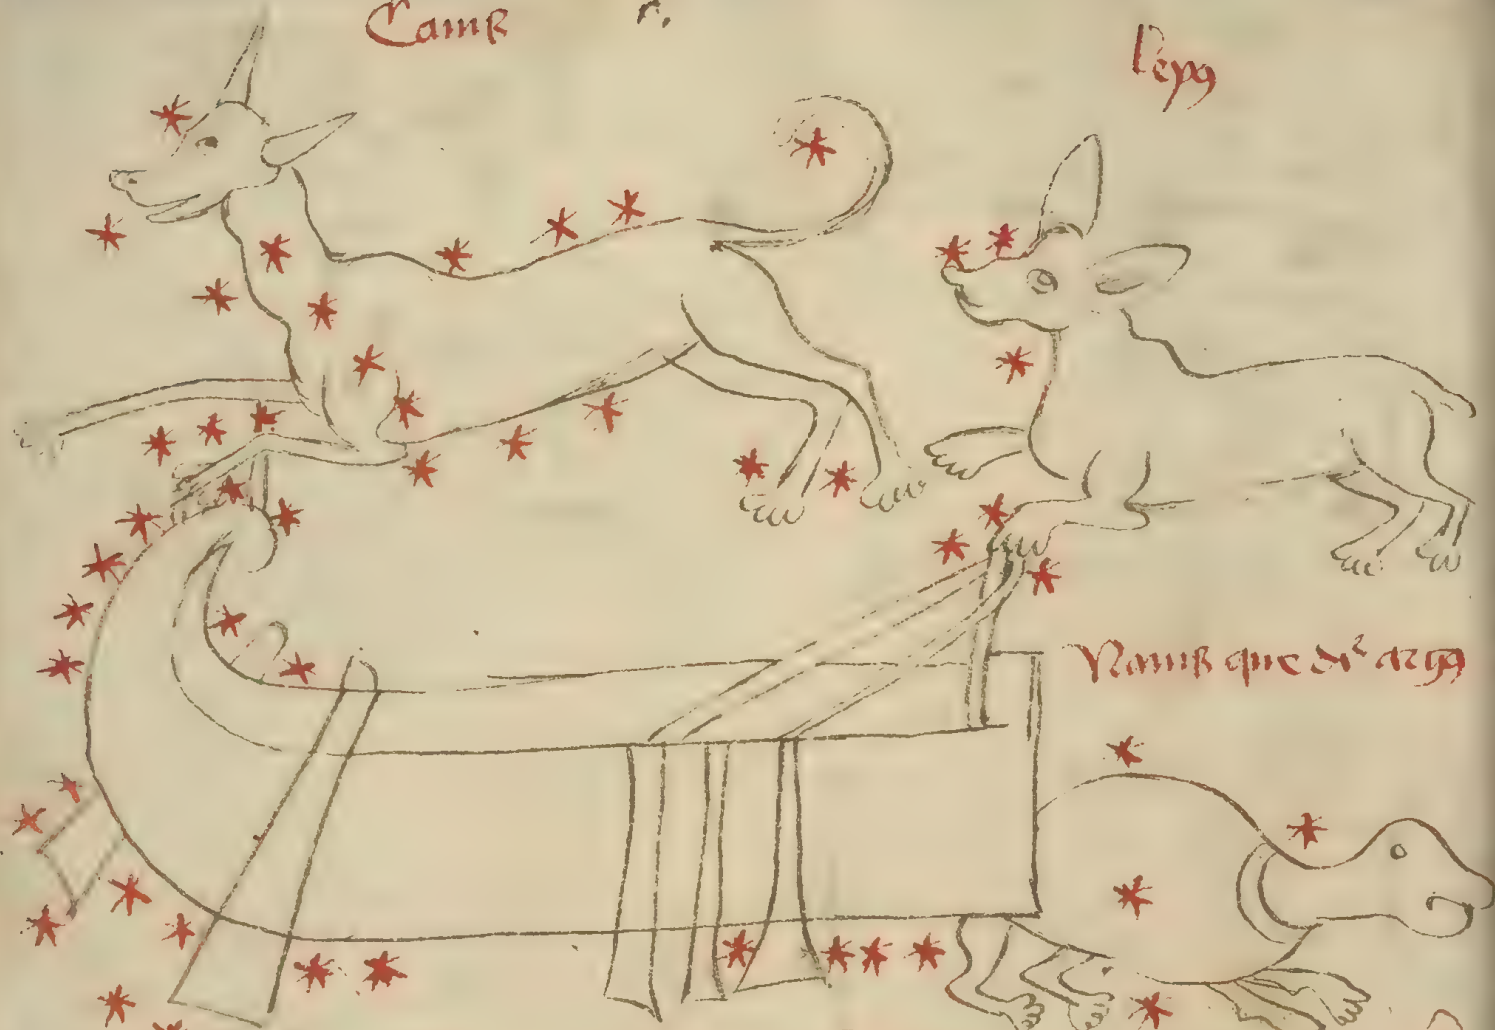 Canis
lepus
Nauis que dr̄ argo